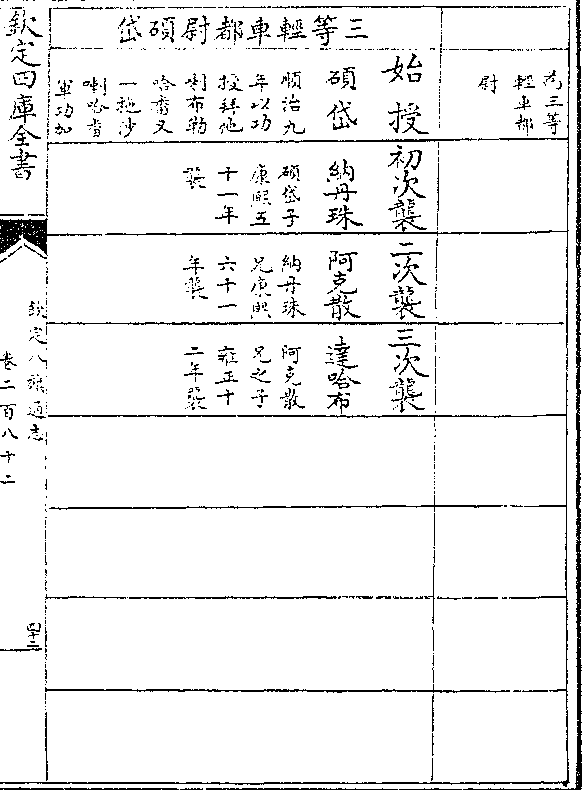 為三等
輕車都
尉
三等輕車都尉碩岱
始授
碩岱
順治九
年以功
授拜他
喇布勒
哈番又
一拖沙
喇哈番
軍功加
初次襲
納丹珠
碩岱子
康熙五
十一年
襲
二次襲
阿克散
納丹珠
兄康熙
六十一
年襲
三次襲
達哈布
阿克散
兄之子
雍正十
二年襲
欽定四庫全書
欽定八旗通志
卷二百八十二
四十二